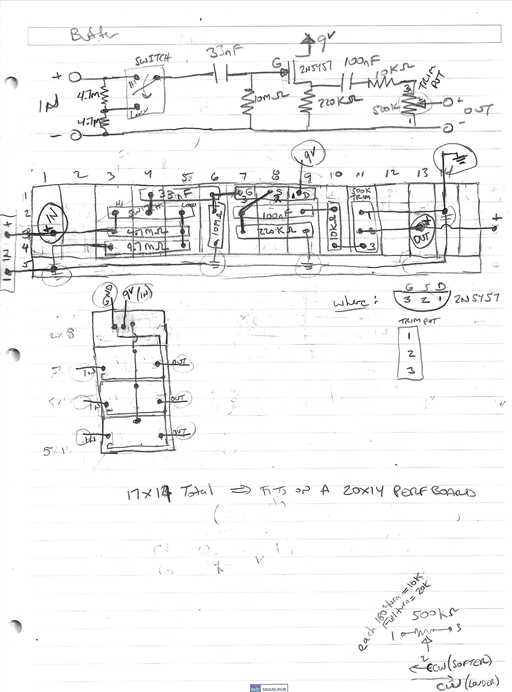 Buffer
9V
SWITCH
33nF
G
2N5457
100nF
10KΩ
TRIM POT
+
Hi
4.7M
IN
Low
4.7M
10MΩ
220KΩ
500K
3
1
+
OUT
-
-
1 2 3 4 5 6 7 8 9 10 11 12 13 14
9V
1
2
3
4
5
33nF
G S D
3 2 1
Hi
SWITCH
Low
IN
+
10MΩ
100nF
10KΩ
500K TRIM
1
2
3
OUT
+
4.7MΩ
220KΩ
4.7MΩ
IN
GND
9V (IN)
where:
G S D
3 2 1
2N5457
TRIM POT
1
2
3
IN
OUT
IN
OUT
IN
OUT
17x14 Total ⇒ FITS ON A 20x14 PERFBOARD
each 180° turn = 10K
Full turn = 20K
500KΩ
1
3
2
CCW (SOFTER)
CW (LOUDER)